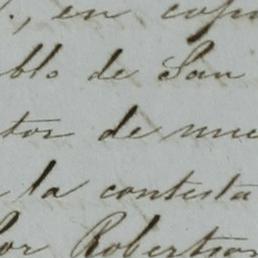 , en cop
blo de San
tor de nue
la contesta
or Robertson